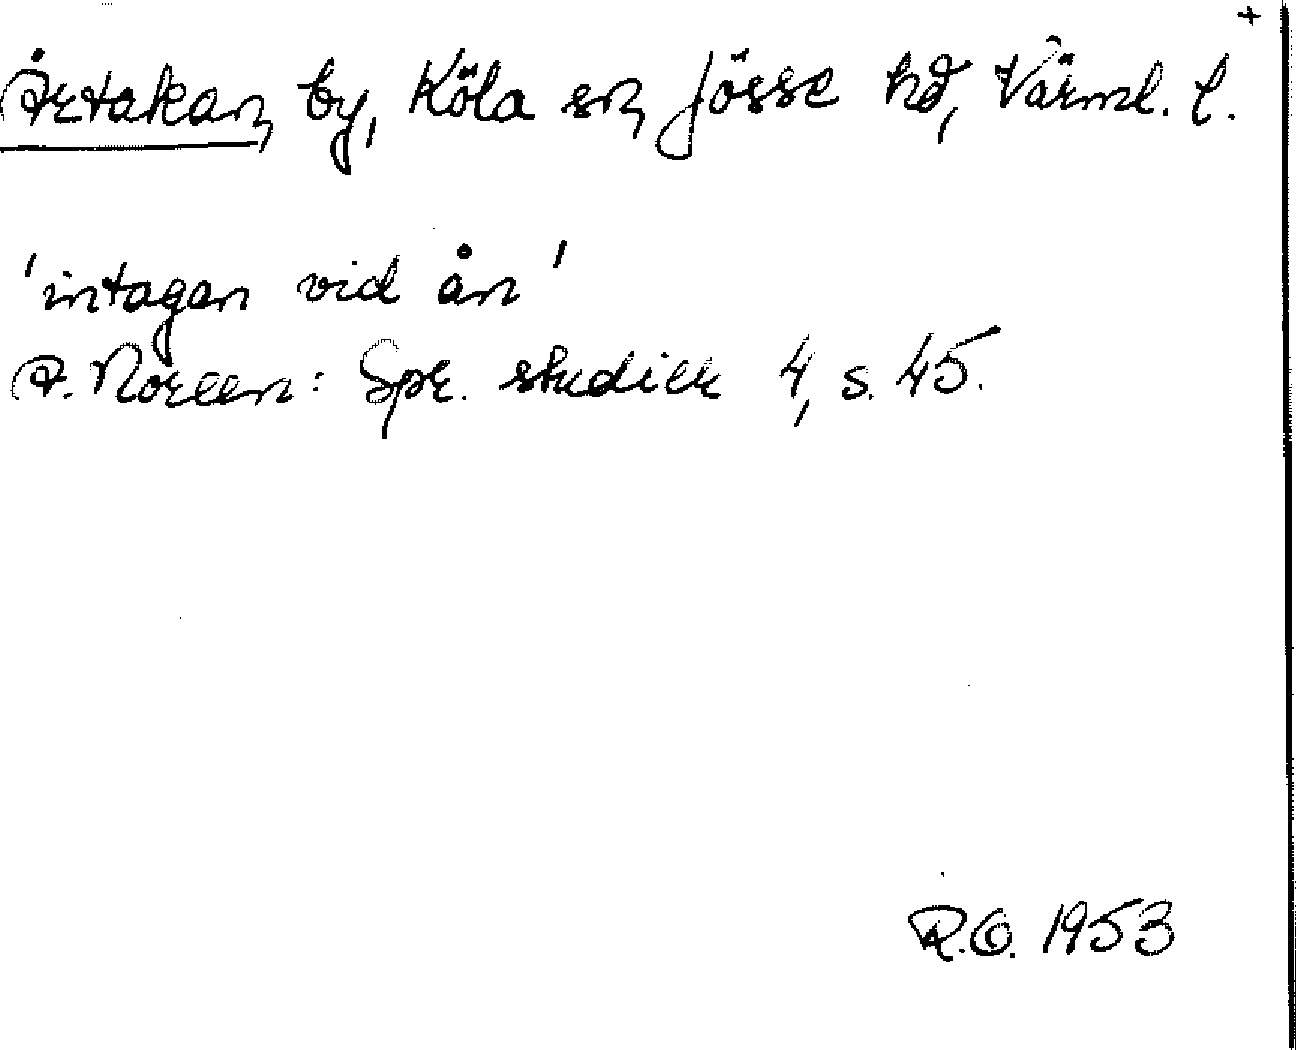 +
Årtakan, by, Köla sn, Jösse hd, Värml. l.
'intagan vid ån'
A. Noreen: Spr. studier 4, s. 45.
R.O. 1953